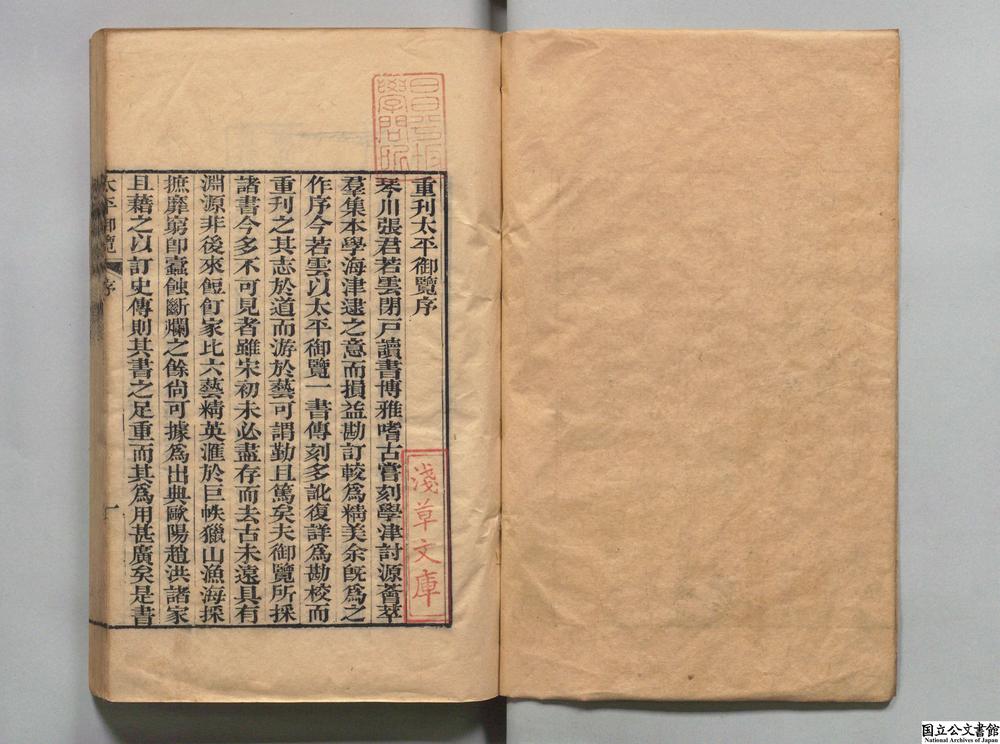 重刊太平御覽序
琴川張君若雲閉戸讀書博雅嗜古嘗刻學津討源薈萃
羣集本學海津逮之意而損益勘訂較爲精美余旣爲之
作序今若雲以太平御覽一書傳刻多訛復詳爲勘校而
重刊之其志於道而游於藝可謂勤且篤矣夫御覽所採
諸書今多不可見者雖宋初未必盡存而去古未遠具有
淵源非後來餖飣家比六藝精英滙於巨帙獵山漁海採
摭靡窮卽蠧蝕斷爛之餘尙可據爲出典歐陽趙洪諸家
且藉之以訂史傳則其書之足重而其爲用甚廣矣是書
太平御覽
序
一
昌平坂
學問所
淺草文庫
国立公文書館
National Archives of Japan